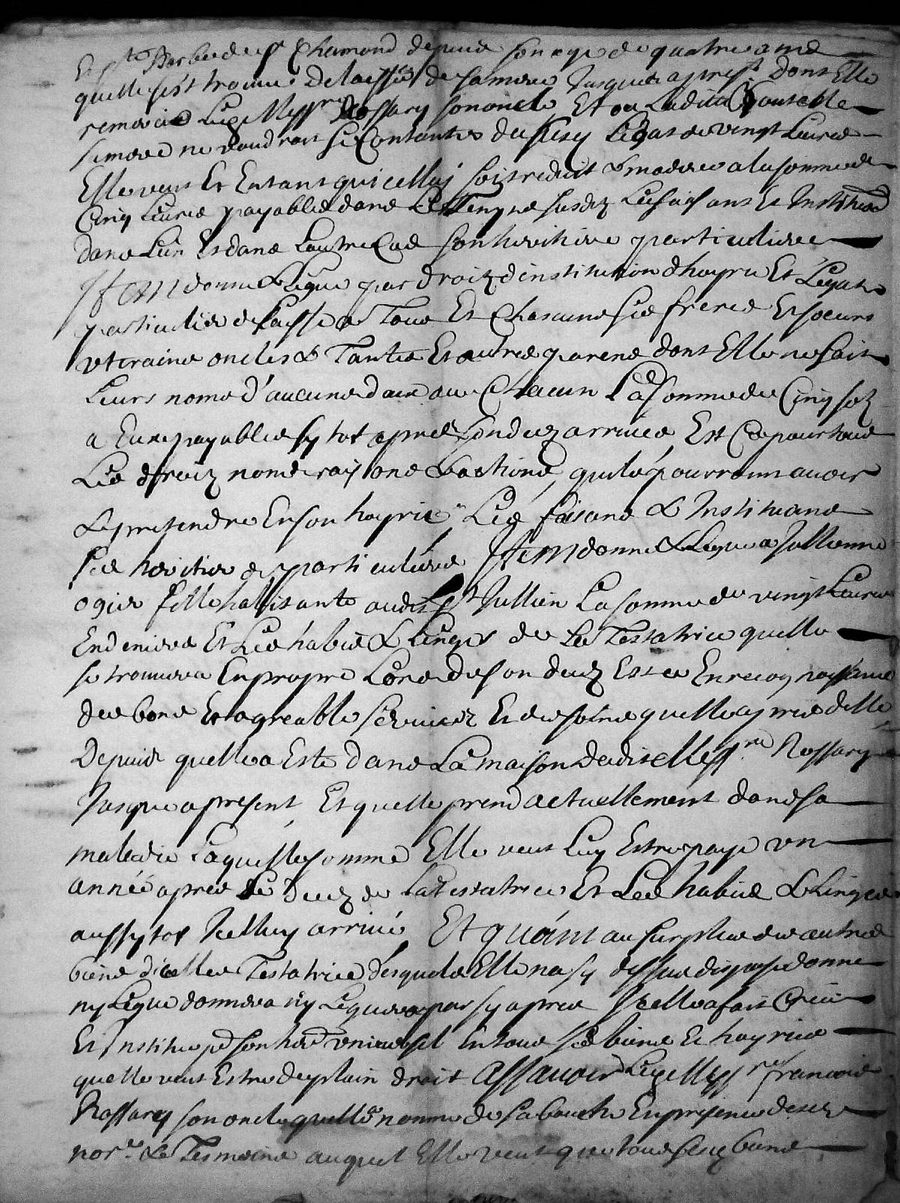 depuis son aage de quatre ans
quelle sest trouuee delaissee de sa mere Jusques a pres.t dont Elle
remercie Rossary son oncle Et ou Ladite
sa mere ne voudroit se Contanter dud. Legat de vingt Liures
Elle veut Et Entant quicelluy soit reduit & modere a la somme de
Cinq Liures payable dans Le Terme susdit Le faisant Et Instituant
dans Lun Et dans Lautre Cas son heritiere particuliere
Item donne & Legue par droit dinstitution dhoyrie Et Legat
particulier delaisse a Tous Et Chacuns ses freres Et soeurs
uterains oncles & Tantes Et autres parens dont Elle ne sait
Leurs noms d'aucuns daux au Chacun La somme de Cinq solz
a Eux payables sy tot apres son decez arriué Et Ce pour tous
Les droitz noms raisons & actions quils pourroint auoir
& pretendre En son hoyrie Les faisant & Instituant
ses heritiers particuliers Item donne & Legue a Jullienne
ogier fille habitante audit St Jullien La somme de vingt Liures
En deniers Et Les habis & Linges de La Testatrice quelle
se trouuera En propre Lors de son decez Et ce En reconnoissance
des bons Et agreables seruices Et des soins quelle a pris delle
Depuis quelle a Esté dans La maison dudit Rossary
Jusques a present, Et quelle prend actuellement dans sa
maladie Laquelle somme Elle veut Luy Estre payé un
année apres Le decez de La testatrice Et Les habis & Linges
aussytot Icelluy arriué Et quant au surplus des autres
biens dicelle Testatrice desquels Elle na sy dessus dispose donne
ny Legue donnera ny Leguera par sy apres Icelle a fait Créé
Et Institué p.r son her. uniuersel En tous ses biens Et hoyrie
quelle veut Estre de plain droit Assauoir francois
Rossary son oncle quelle a nommé de sa bouche En presence desd.
nor.e & Tesmoins auquel Elle veut que tous sesd. biens